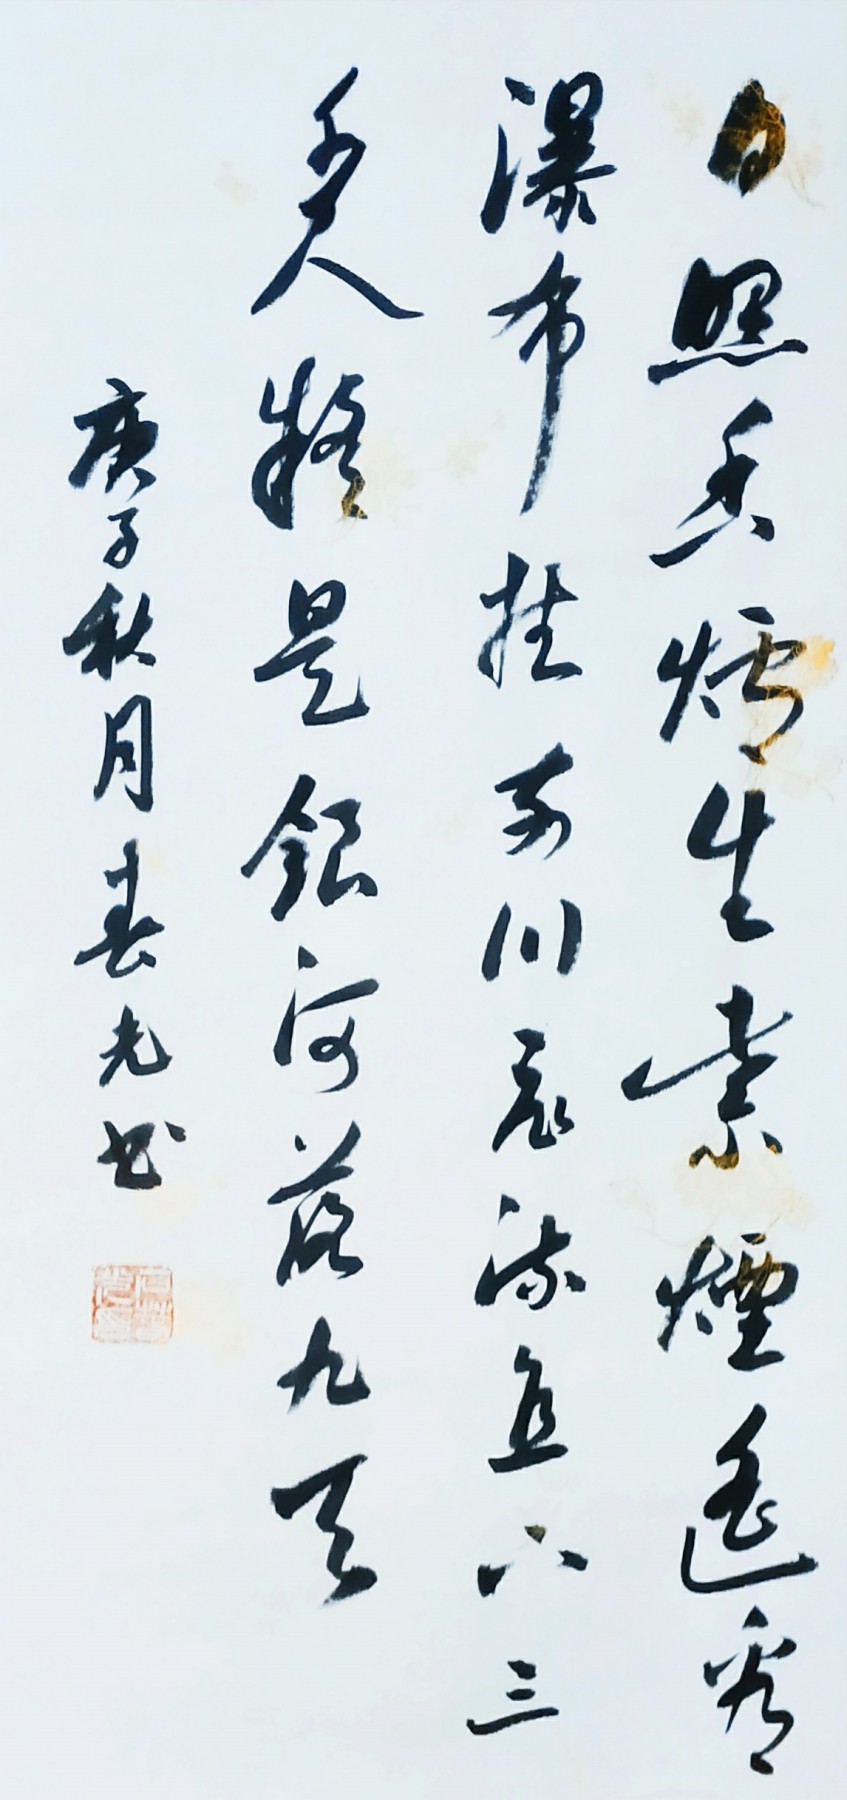 日照香炉生紫煙遙看
瀑布挂前川飛流直下三
千尺疑是銀河落九天
庚子秋月春光书